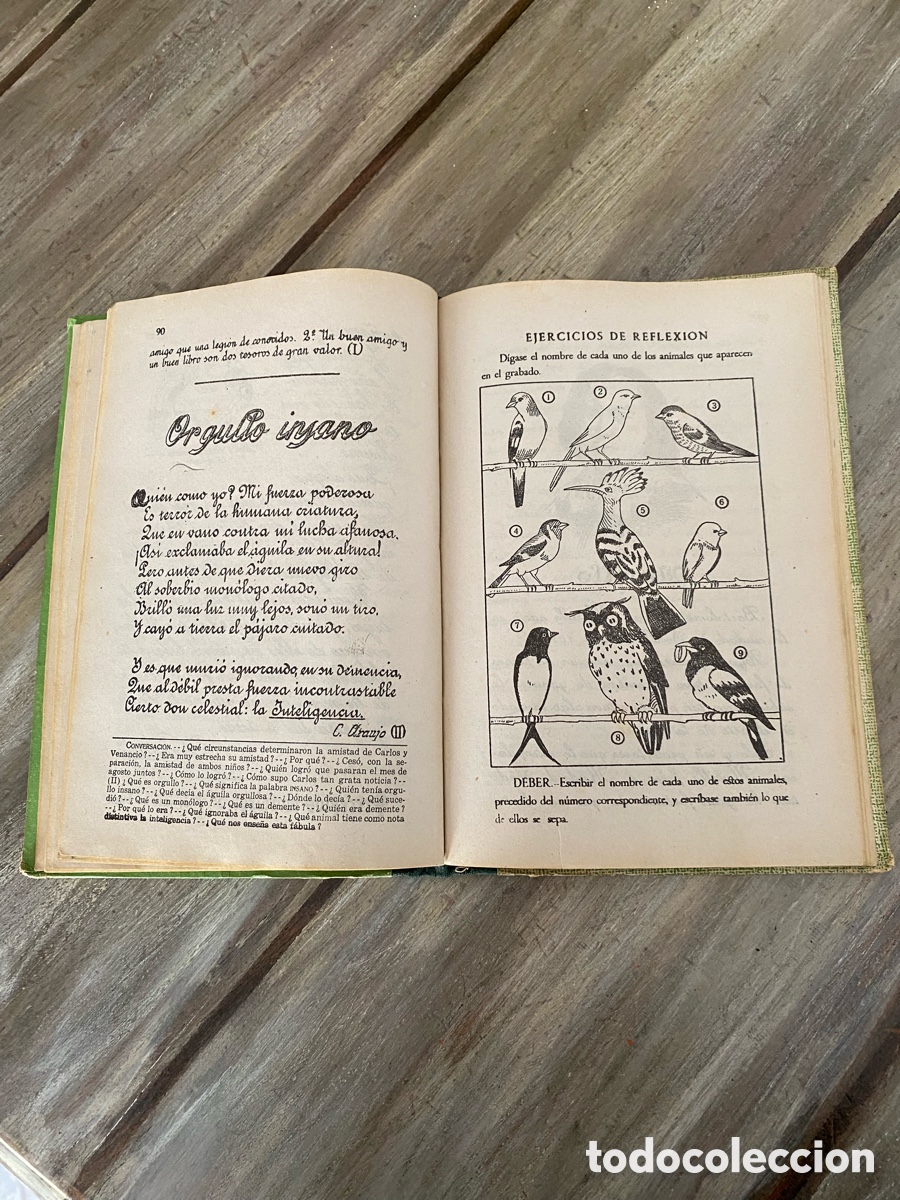 90
amigo que una legión de conocidos. 2º Un buen amigo y
un buen libro son dos tesoros de gran valor. (I)
Orgullo insano
Quién como yo? Mi fuerza poderosa
Es terror de la humana criatura,
Que en vano contra mí lucha afanosa.
¡Así exclamaba el águila en su altura!
Pero antes de que diera nuevo giro
Al soberbio monólogo citado,
Brilló una luz muy lejos, sonó un tiro,
Y cayó a tierra el pájaro cuitado.
Y es que murió ignorando, en su demencia,
Que al débil presta fuerza incontrastable
Cierto don celestial: la Inteligencia.
C. Araujo (II)
CONVERSACION.--¿Qué circunstancias determinaron la amistad de Carlos y
Venancio?--¿Era muy estrecha su amistad?--¿Por qué?--¿Cesó, con la se-
paración, la amistad de ambos niños?--¿Quién logró que pasaran el mes de
agosto juntos?--¿Cómo lo logró?--¿Cómo supo Carlos tan grata noticia?--
(II) ¿Qué es orgullo?--¿Qué significa la palabra INSANO?--¿Quién tenía orgu-
llo insano?--¿Qué decía el águila orgullosa?--¿Dónde lo decía?--¿Qué suce-
dió?--¿Qué es un monólogo?--¿Qué es un demente?--¿Quién era demente?
--¿Por qué lo era?--¿Qué ignoraba el águila?--¿Qué animal tiene como nota
distintiva la inteligencia?--¿Qué nos enseña esta fábula?
EJERCICIOS DE REFLEXION
Dígase el nombre de cada uno de los animales que aparecen
en el grabado.
1
2
3
4
5
6
7
8
9
DEBER.--Escribir el nombre de cada uno de estos animales,
precedido del número correspondiente, y escríbase también lo que
de ellos se sepa.
todocoleccion